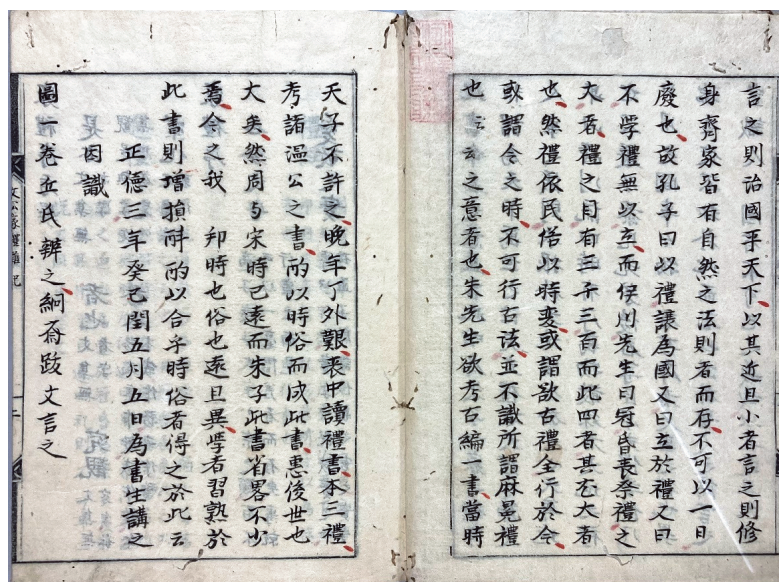 言之則治國平天下以其近且小者言之則修
身齊家皆有自然之法則者而存不可以一日
廢也故孔子曰以禮讓為國又曰立於禮又曰
不学禮無以立而伊川先生曰冠昏喪祭禮之
大者禮之目有三千三百而此四者其至大者
也然禮依民俗以時変或謂欲古禮全行於今
或謂今之時不可行古法並不識所謂麻冕禮
也云云之意者也朱先生欲考古編一書當時
天子不許之晚年丁外艱喪中讀禮書本三禮
考諸温公之書酌以時俗而成此書惠後世也
大矣然周与宋時已遠而朱子此書省畧不少
焉今之我 邦時也俗也遠且異学者習熟於
此書則增損斟酌以合乎時俗者得之於此云
正德三年癸巳閏五月五日為書生講之
因識
圖一卷丘氏辨之絅斎跋文言之